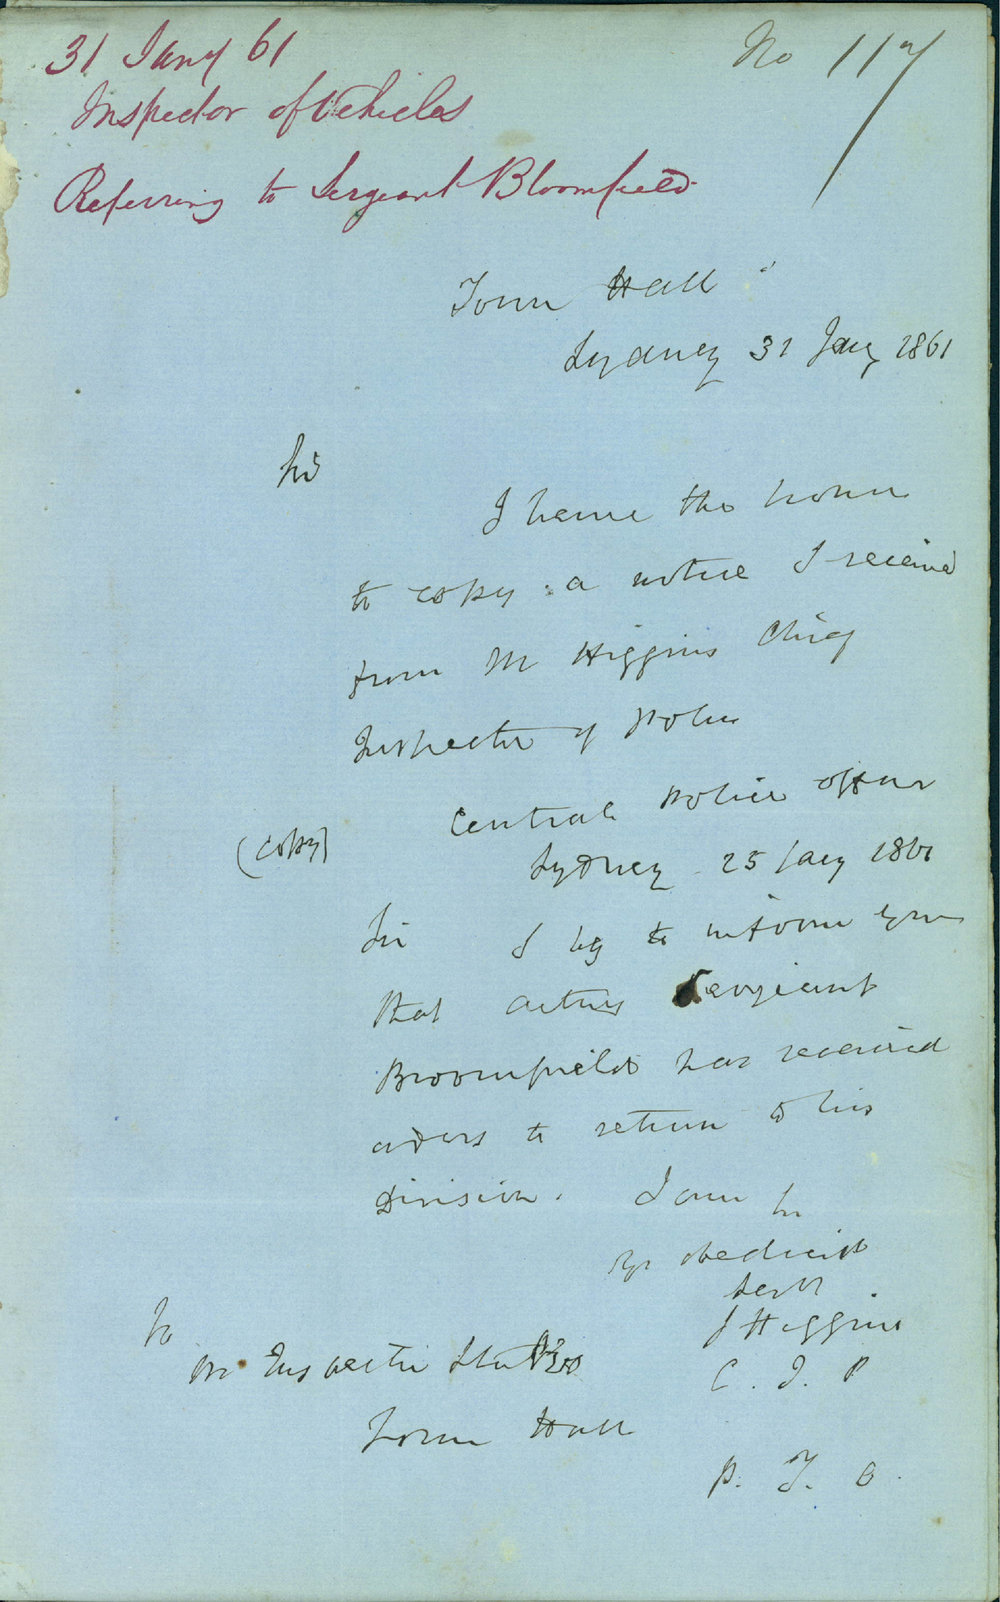 31 Jany 61
No 117
Inspector of Vehicles
Referring to Sergeant Bloomfield
Town Hall
Sydney 31 Jany 1861
Sir
I have the honor
to copy a notice I received
from Mr Higgins Chief
Inspector of Police
(Copy)
Central Police Office
Sydney 25 Jany 1861
Sir I beg to inform you
that acting Sergeant
Broomfield has received
orders to return to his
Division. I am Sir
Yr obedient
Servt
J Higgins
C. I. P
To
Mr Inspector
Town Hall
P. T. O.